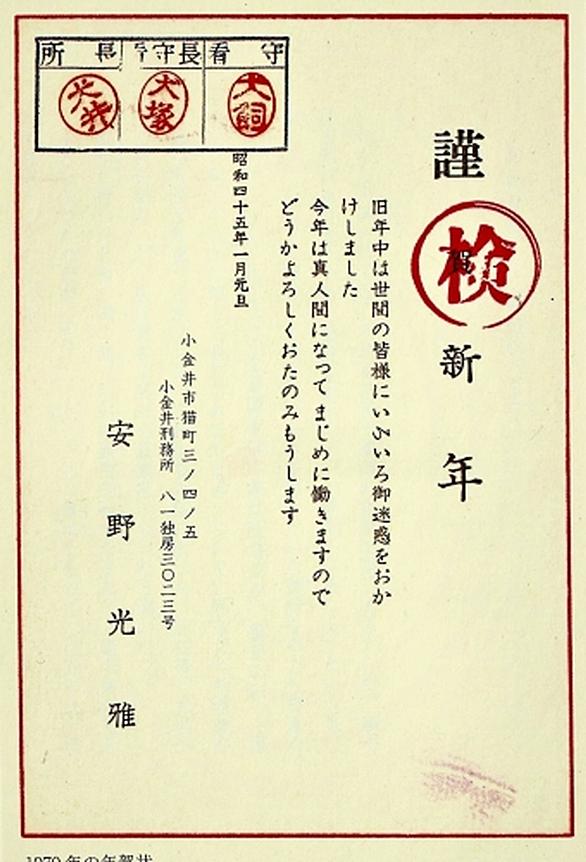 謹賀新年
検
旧年中は世間の皆様にいろいろ御迷惑をおか
けしました
今年は真人間になってまじめに働きますので
どうかよろしくおたのみもうします
昭和四十五年一月元旦
小金井市猫町三ノ四ノ五
小金井刑務所 八一独房三〇二三号
安野光雅
所長 看守長 看守
犬塚 犬飼
1970年の年賀状